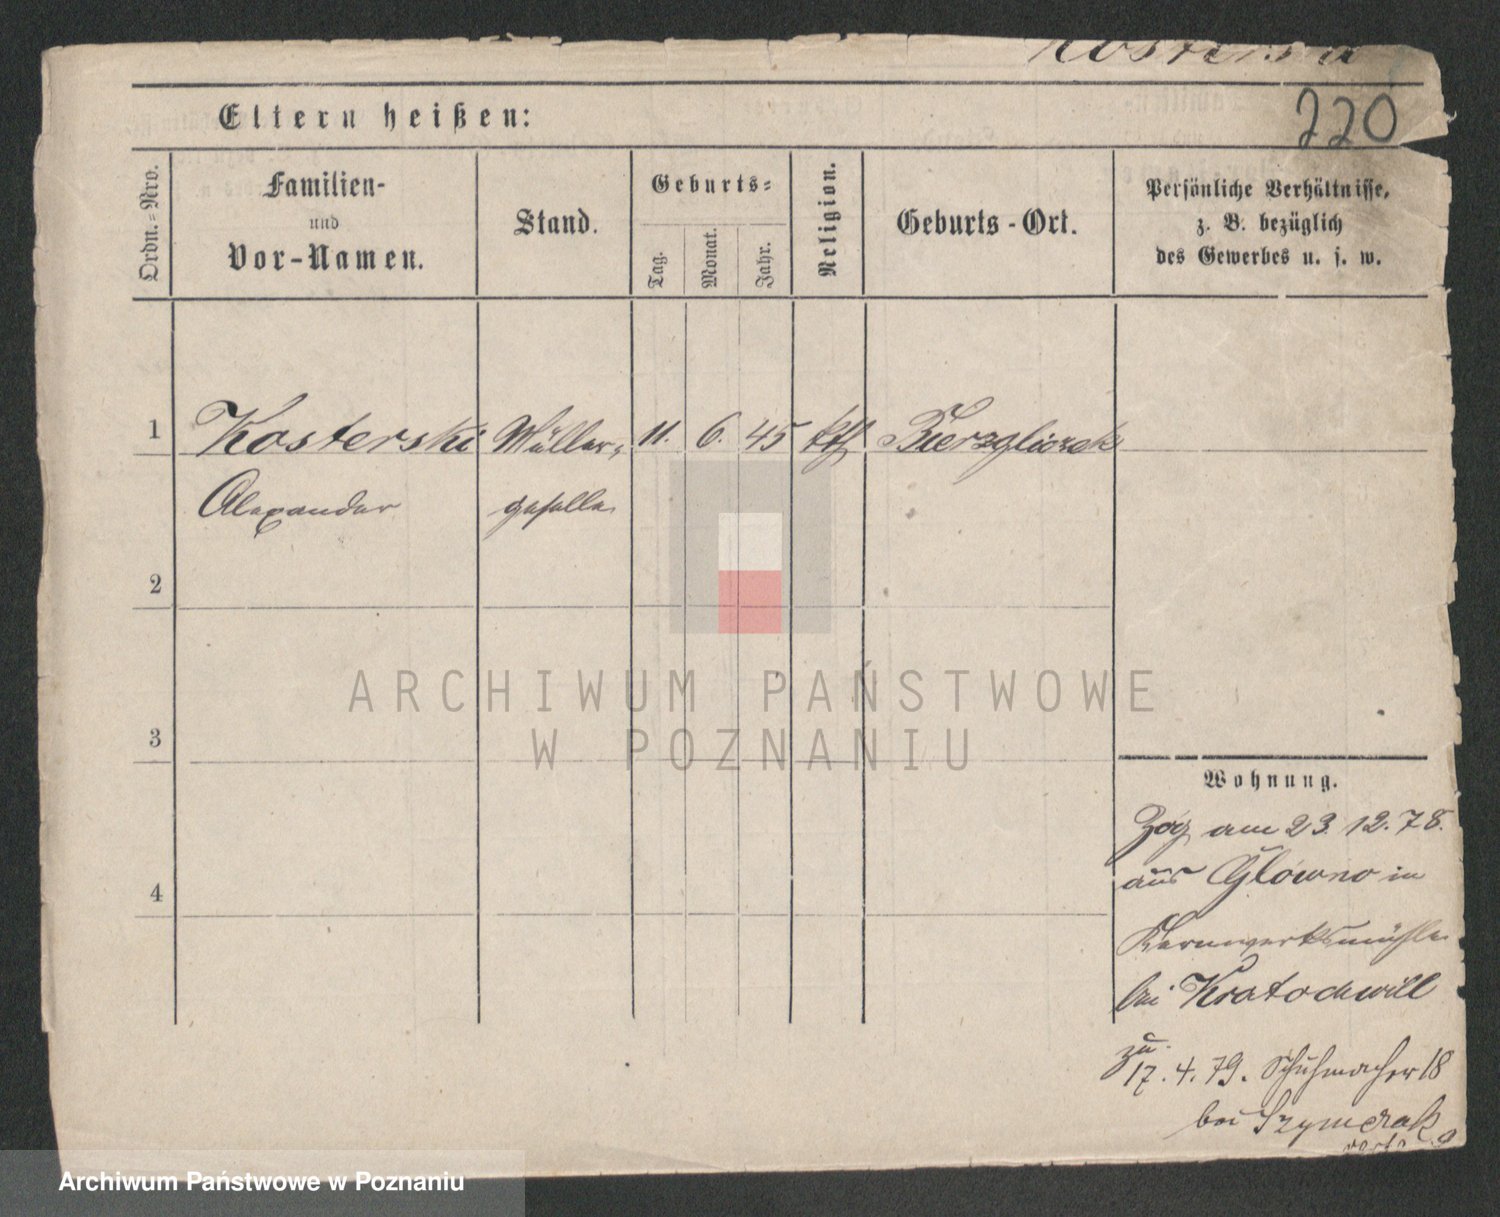 Kosterski
220
Eltern heißen:
Ordn.=Nro.
Familien-
und
Vor-Namen.
Stand.
Geburts=
Tag.
Monat.
Jahr.
Religion.
Geburts-Ort.
Persönliche Verhältnisse,
z. B. bezüglich
des Gewerbes u. s. w.
1 Kosterski Müller, 11. 6. 45 kth Bierzgliczek
Alexander geselle
2
3
4
Wohnung.
Zog am 23. 12. 78.
aus Glówno in
Kernwerksmühle
bei Kratochwill
zu.
17. 4. 79. Schuhmacher 18
bei Szymczak
ARCHIWUM PAŃSTWOWE
W POZNANIU
Archiwum Państwowe w Poznaniu